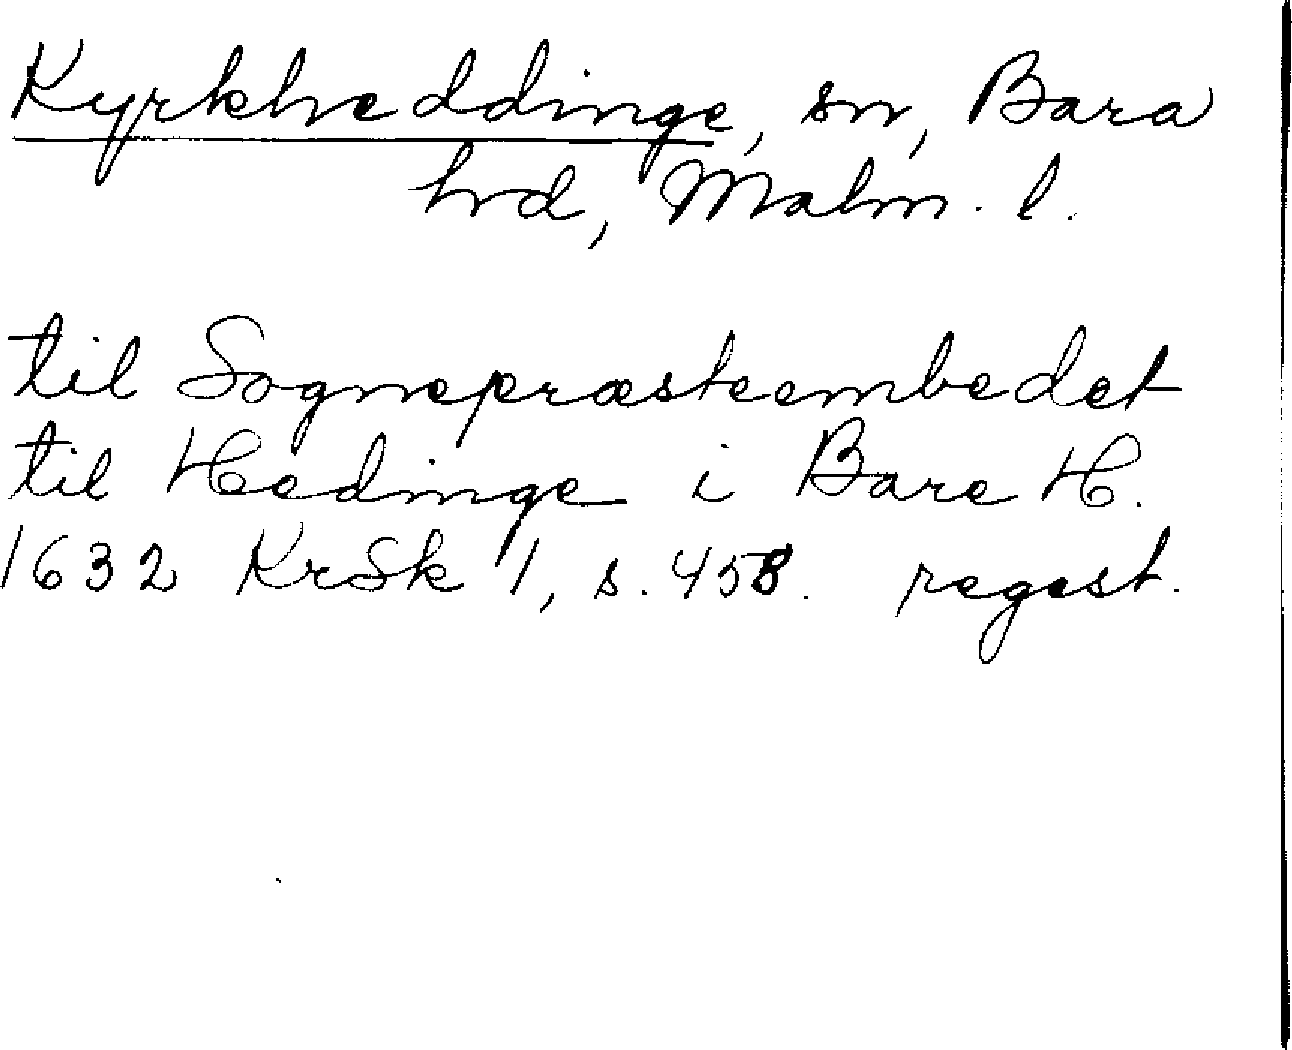 Kyrkheddinge, sn, Bara
hrd, Malm. l.
til Sognepræsteembedet
til Hedinge i Bare H.
1632 KrSk 1, s. 458. regest.